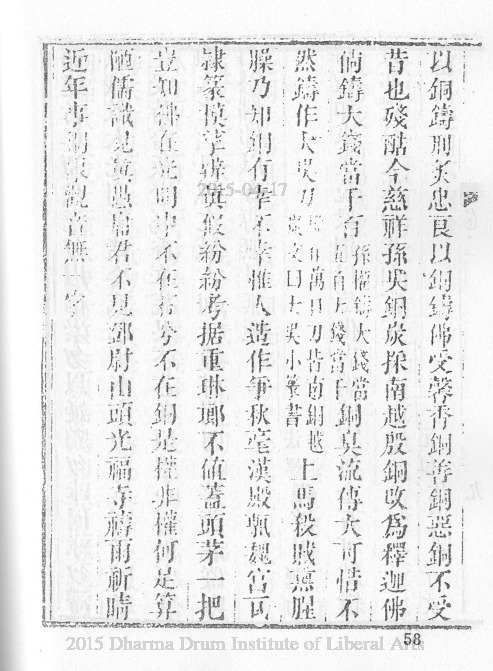 以銅鑄刑炙忠良以銅鑄佛受馨香銅善銅惡銅不受
昔也殘酷今慈祥孫吳銅炭採南越殷銅改為釋迦佛
倘鑄大錢當千百孫權鑄大錢當五百大錢當千銅臭流傳大可惜不
然鑄作大吳刀萬刀皆南銅越炭文曰大吳小篆書上馬殺賊羶腥
臊乃知銅有幸不幸推人造作爭秋毫漢殿瓴魏宮瓦
隸篆摸辨真假紛紛考据重琳瑯不值蓋頭茅一把
豈知佛在光明中不在君兮不在銅是權非權何足算
陋儒識見真愚君不見鄧尉山頭光福寺禱雨祈晴
近年事銅觀音無一字
2015-04-17
2015 Dharma Drum Institute of Liberal Arts
58